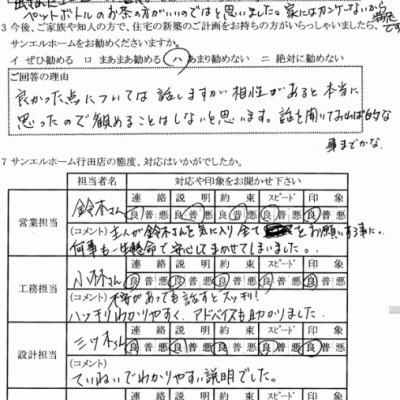 ペットボトルのお茶の方がいいのではと思いました。家にはカンナーないから
3 今後、ご家族や知人の方で、住宅の新築のご計画をお持ちの方がいらっしゃいましたら、
サンエルホームをお勧めくださいますか。
イ ぜひ勧める ロ まあまあ勧める ハ あまり勧めない ニ 絶対に勧めない
ご回答の理由
良かった点については話しますが相性があると本当に
思ったので勧めることはしないと思います。話を聞いてみれば的な
事までかな。
7 サンエルホーム行田店の態度、対応はいかがでしたか。
担当者名 対応や印象をお聞かせ下さい
連絡 説明 約束 スピード 印象
営業担当 鈴木さん 良 普 悪 良 普 悪 良 普 悪 良 普 悪 良 普 悪
(コメント) 主人が鈴木さんを気に入り全て をお願いする事に。
何事も一生懸命で安心してまかせてしまいました。
連絡 説明 約束 スピード 印象
工務担当 小林さん 良 普 悪 良 普 悪 良 普 悪 良 普 悪 良 普 悪
(コメント) 不得があっても話すとスッキリ!
ハッキリわかりやすく、アドバイスも助かりました。
連絡 説明 約束 スピード 印象
設計担当 三ッ木さん 良 普 悪 良 普 悪 良 普 悪 良 普 悪 良 普 悪
(コメント)
ていねいでわかりやすい説明でした。